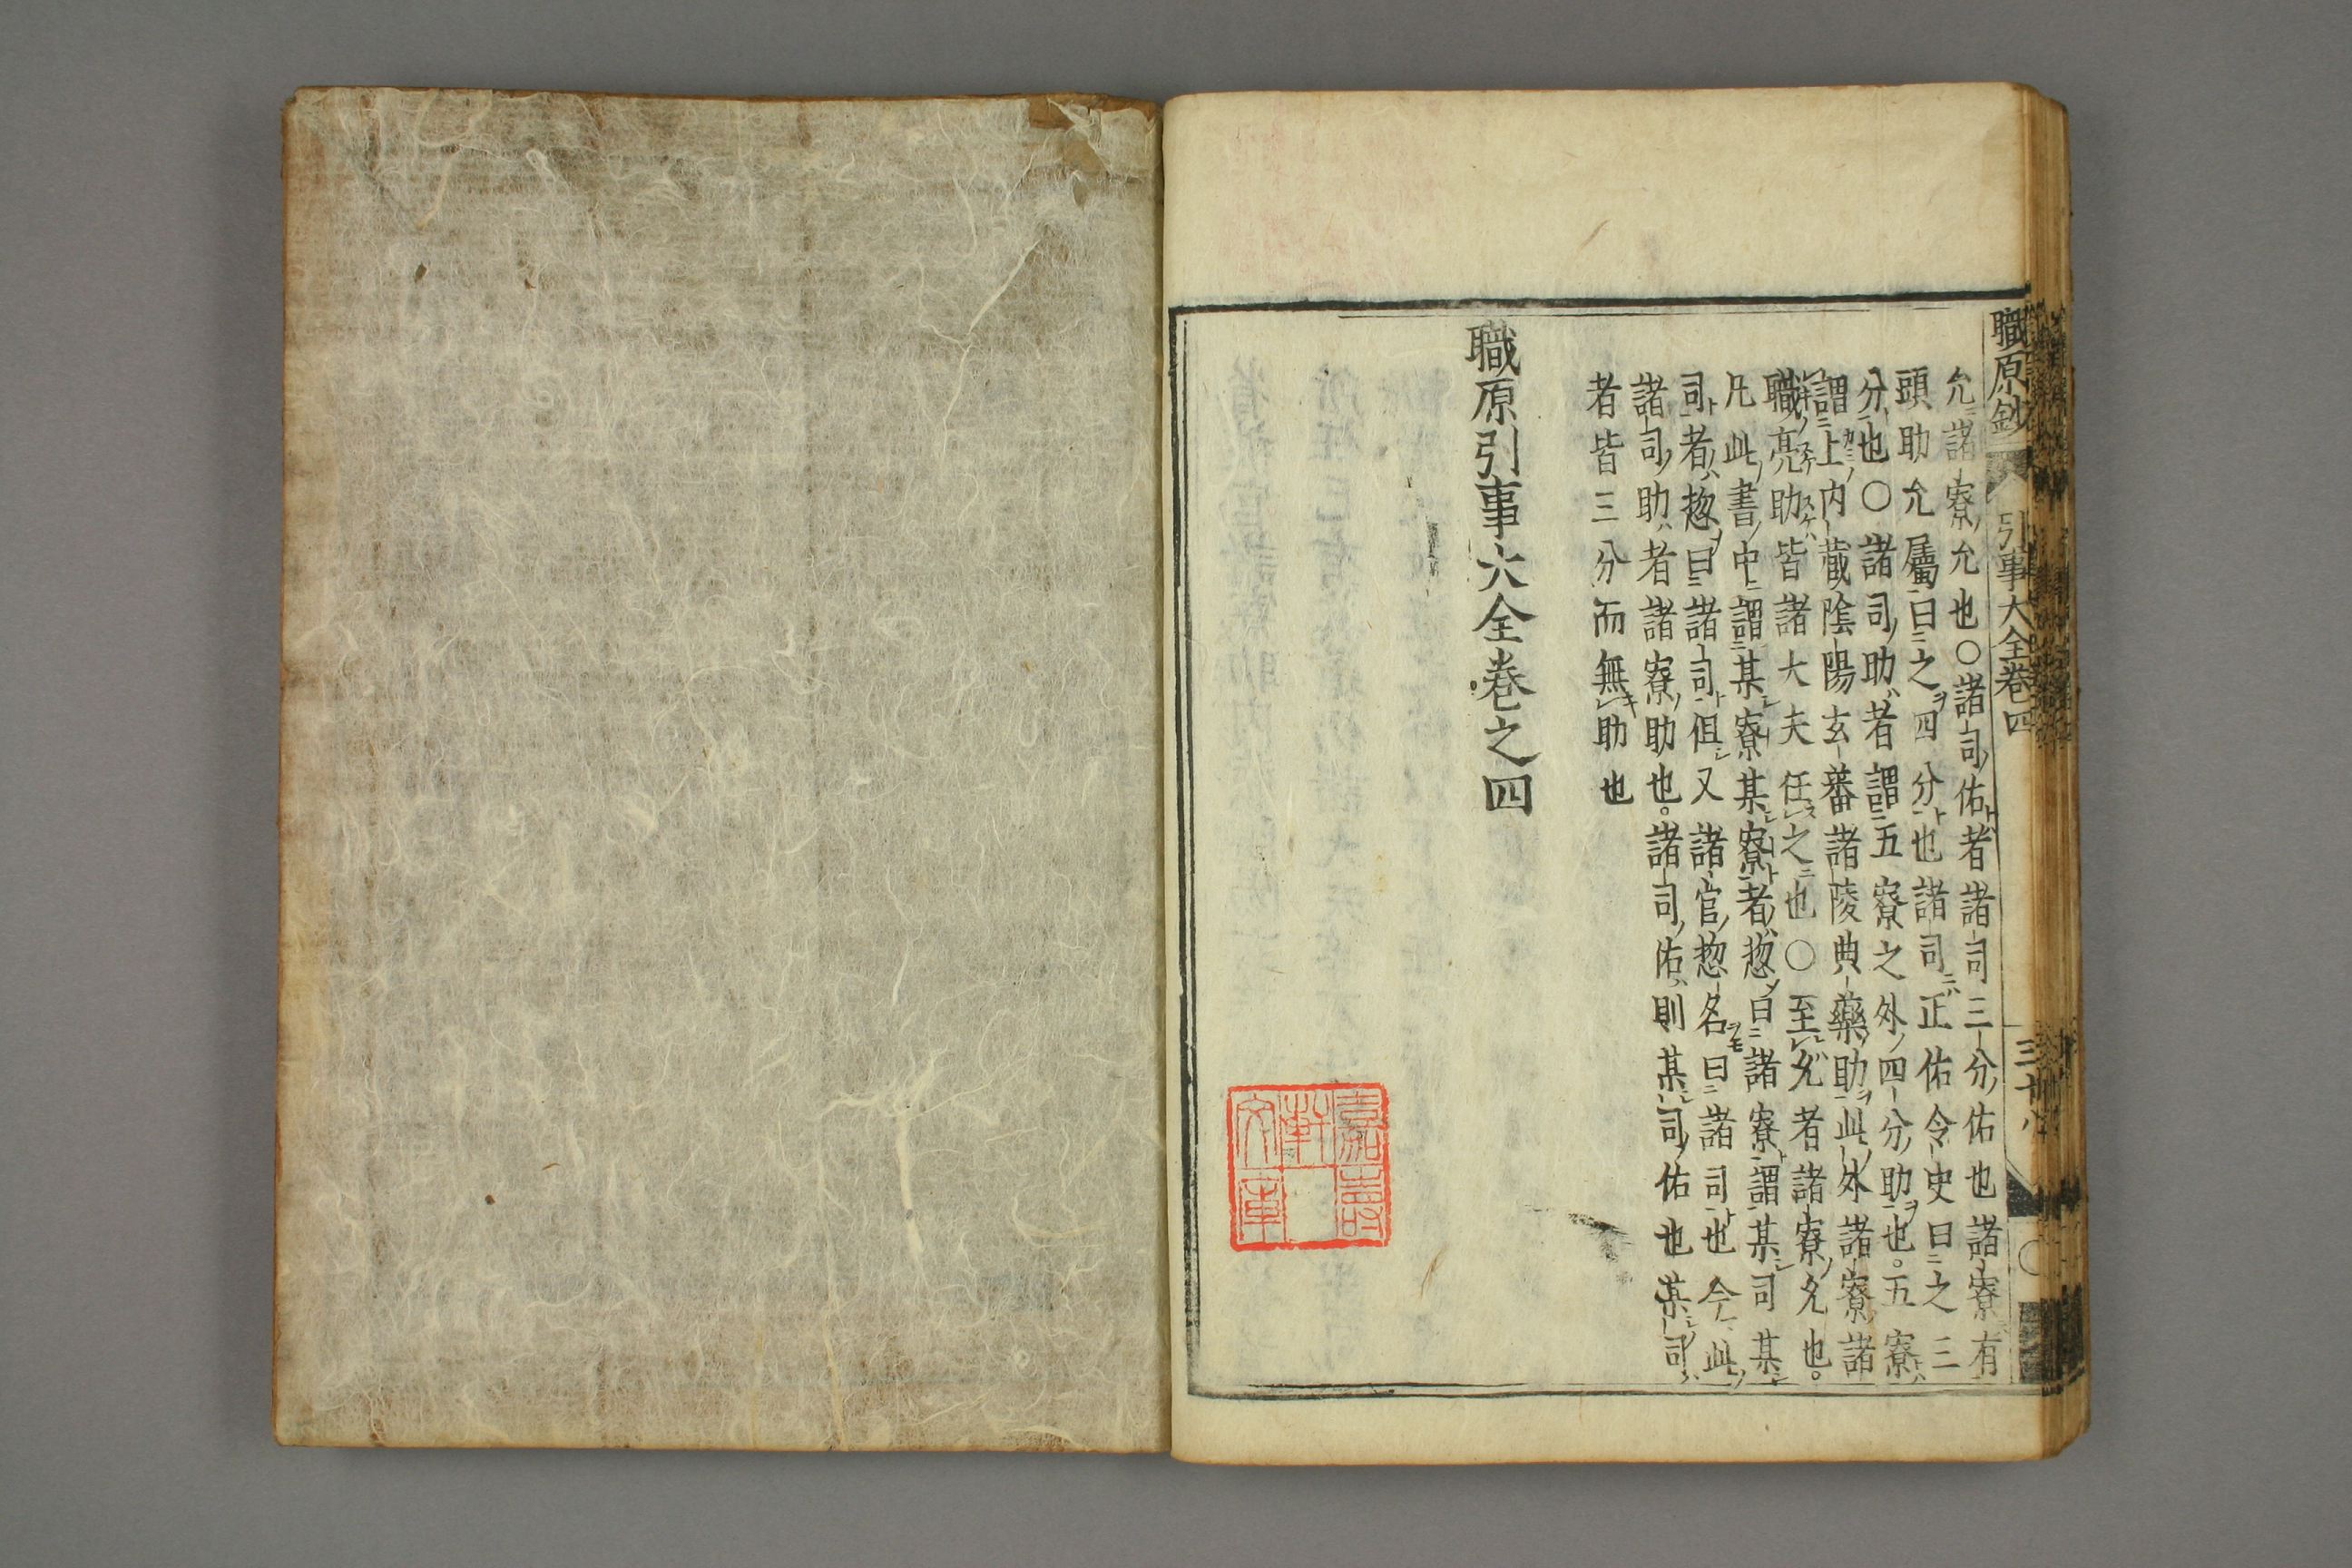 職原鈔 引事大全卷四 三十八
允諸寮允也○諸司佑者諸司三分佑也諸寮有
頭助允屬曰之四分也諸司正佑令史曰之三
分也○諸司助者謂五寮之外四分助也。五寮
謂上内藏陰陽玄蕃諸陵典藥助此外諸寮諸
職亮助皆諸大夫任之也○至允者諸寮允也。
凡此書中謂某寮某寮者惣曰諸寮謂某司某
司者惣曰諸司但又諸官惣名曰諸司也今此
諸司助者諸寮助也。諸司佑則某司佑也某司
者皆三分而無助也
職原引事大全卷之四
嘉壽軒文庫